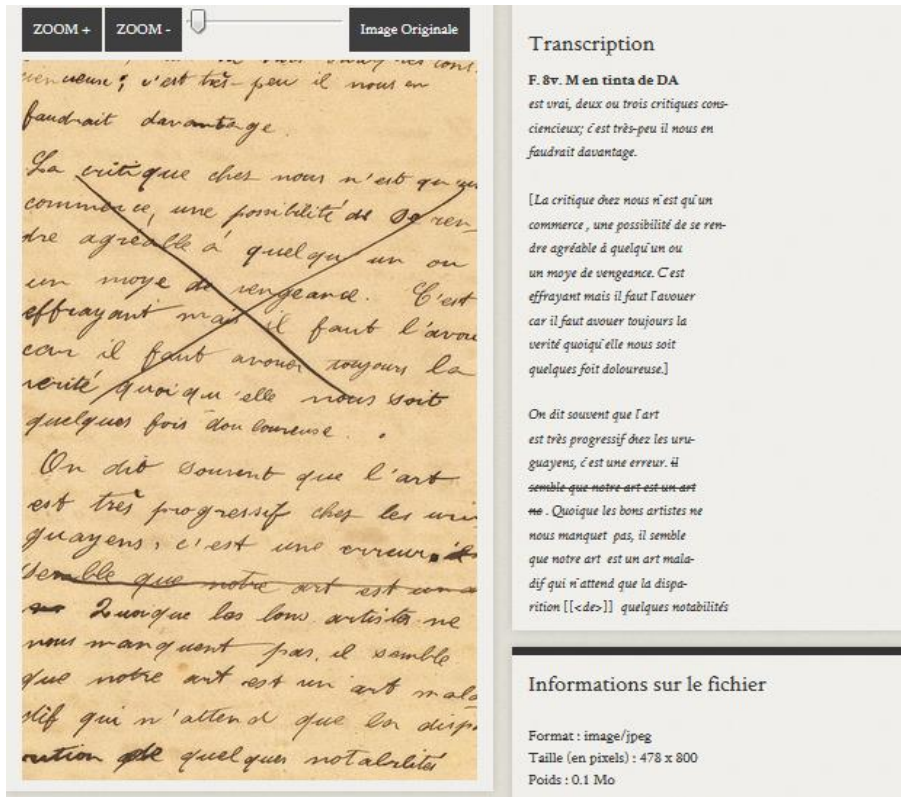 ZOOM +
ZOOM -
Image Originale
ciencieux; c'est très-peu il nous en
faudrait davantage.
La critique chez nous n'est qu'un
commerce, une possibilité de se ren-
dre agréable à quelqu'un ou
un moye de vengeance. C'est
effrayant mais il faut l'avou
car il faut avouer toujours la
verité quoiqu'elle nous soit
quelques fois douloureuse.
On dit souvent que l'art
est très progressif chez les uru
guayens, c'est une erreur. il
semble que notre art est un a
Quoique les bons artistes ne
nous manquent pas, il semble
que notre art est un art mala
dif qui n'attend que la disp
rition de quelques notabilités
Transcription
F. 8v. M en tinta de DA
est vrai, deux ou trois critiques cons-
ciencieux; c'est très-peu il nous en
faudrait davantage.
[La critique chez nous n'est qu'un
commerce , une possibilité de se ren-
dre agréable à quelqu'un ou
un moye de vengeance. C'est
effrayant mais il faut l'avouer
car il faut avouer toujours la
verité quoiqu'elle nous soit
quelques foit doloureuse.]
On dit souvent que l'art
est très progressif chez les uru-
guayens, c'est une erreur. il
semble que notre art est un art
ne . Quoique les bons artistes ne
nous manquet pas, il semble
que notre art est un art mala-
dif qui n'attend que la dispa-
rition [[<de>]] quelques notabilités
Informations sur le fichier
Format : image/jpeg
Taille (en pixels) : 478 x 800
Poids : 0.1 Mo